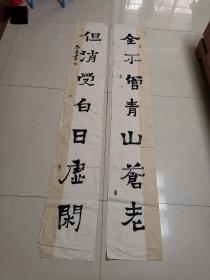 全不管青山蒼老
但消受白日虛閑